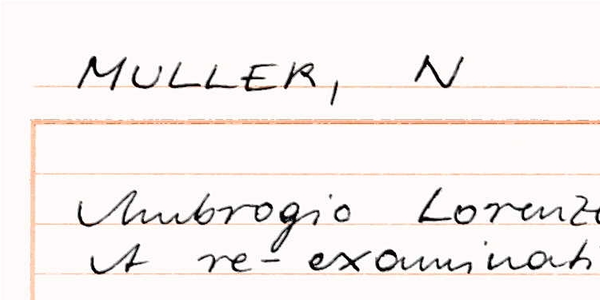 MULLER, N
Ambrogio Lorenze
A re-examinati